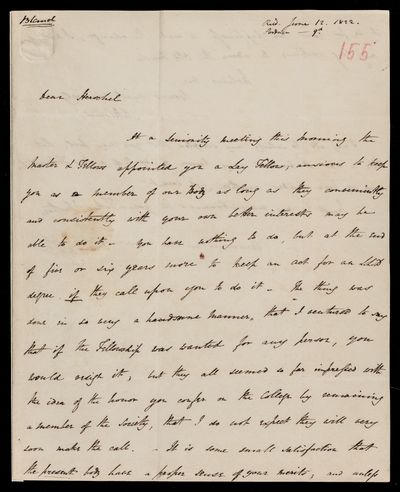 Bland
Recd. June 12. 1822.
155
Dear Herschel
At a Seniority meeting this morning the
Master & Fellows appointed you a Lay Fellow, anxious to keep
you as a member of our Body as long as they conveniently
and consistently with your own better interests may be
able to do it – you have nothing to do, but at the end
of five or six years more to keep an act for an LLD
degree if they call upon you to do it – The thing was
done in so very a handsome manner, that I ventured to say
that if the Fellowship was wanted for any person, you
would resign it, but they all seemed so far impressed with
the idea of the honor you confer on the College by remaining
a member of the Society, that I do not expect they will very
soon make the call. – It is some small satisfaction that
the present body have a proper sense of your merits, and unless